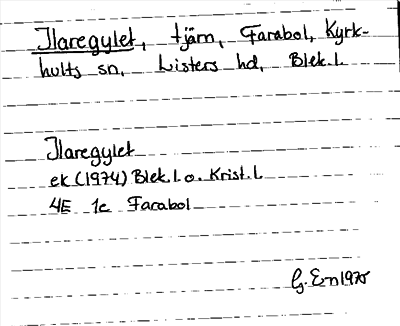 Ilaregylet, tjärn, Farabol, Kyrk-
hults sn, Listers hd, Blek. l.
Ilaregylet
ek (1974) Blek. l. o. Krist. l.
4E 1c Farabol
G. En 1975